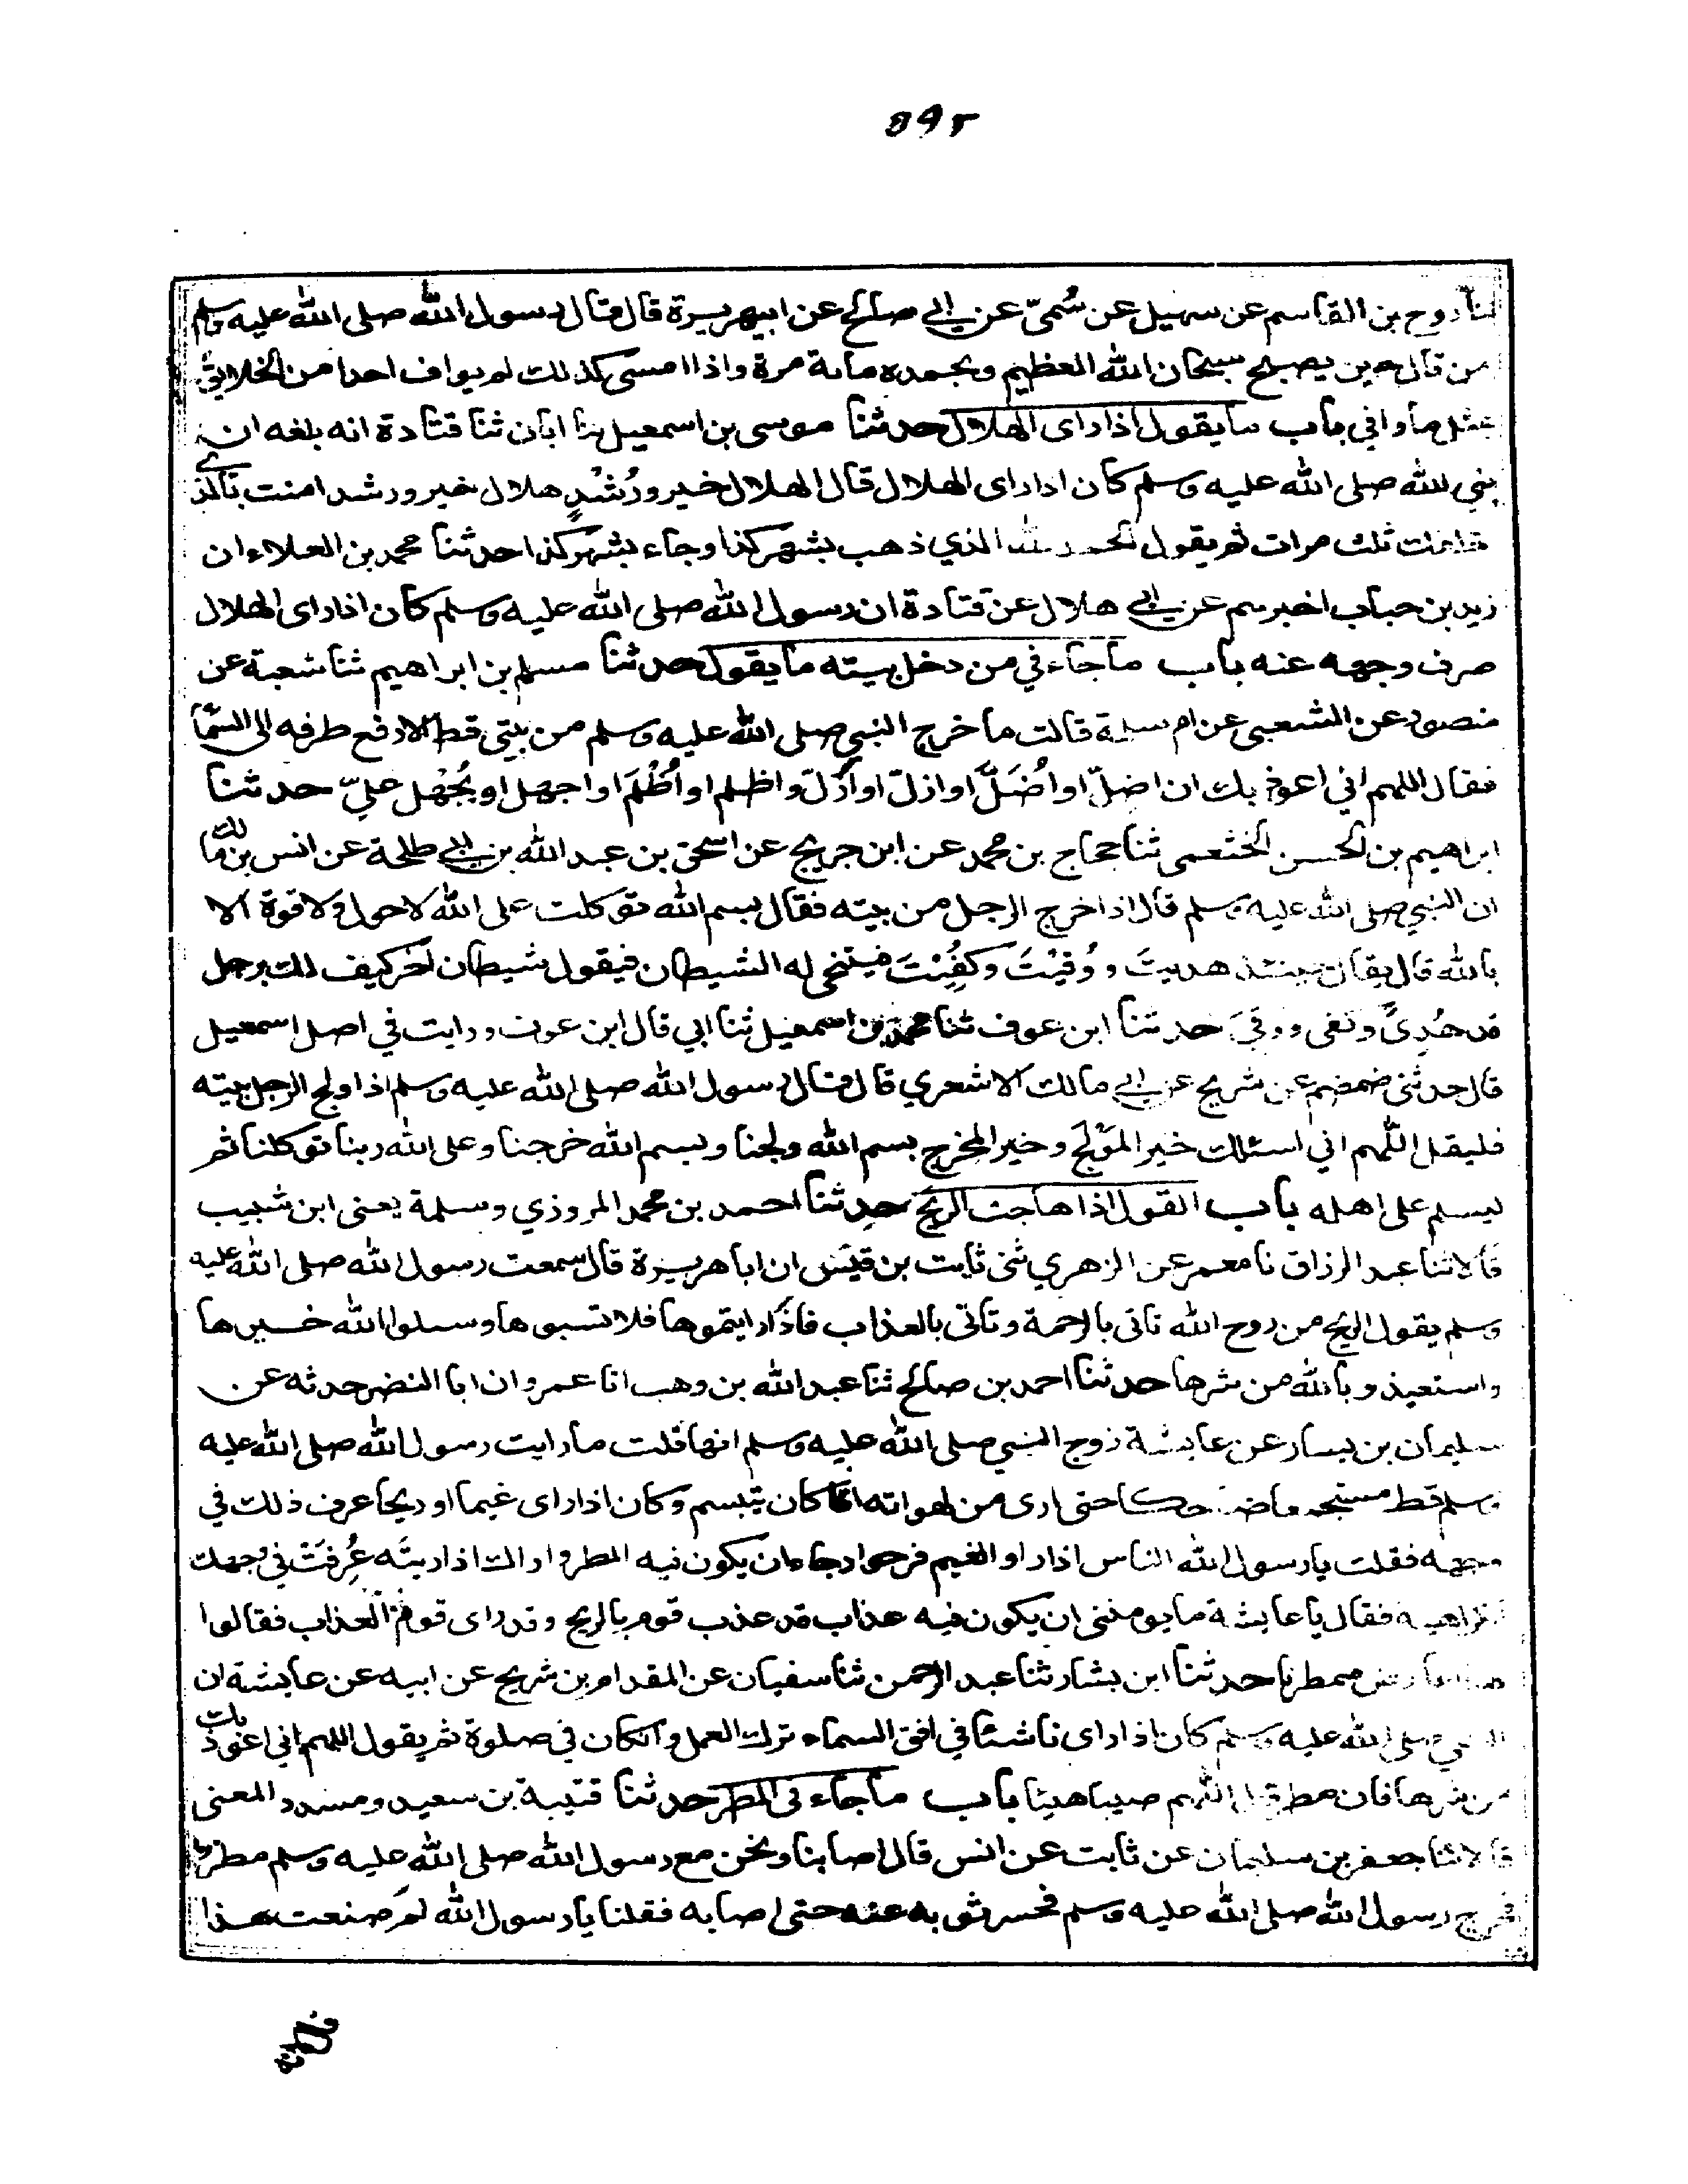 ٥٩٢
ثنا روح بن القاسم عن سهيل عن سُميّ عن ابي صالح عن ابي هريرة قال قال رسول الله صلى الله عليه وسلم
من قال حين يصبح سبحان الله العظيم وبحمده ماىة مرة واذا امسى كذلك لم يواف احد من الخلايق
بمثل ما وافي باب ما يقول اذا راى الهلال حدثنا موسى بن اسمعيل ثنا ابان ثنا قتادة انه بلغه ان
نبي الله صلى الله عليه وسلم كان اذا راى الهلال قال الهلال خير ورُشْدٍ هلال خير ورشد امنت بالذي
خلقك ثلث مرات ثم يقول الحمد لله الذي ذهب بشهر كذا وجاء بشهر كذا حدثنا محمد بن العلاء ان
زيد بن حباب اخبرهم عن ابي هلال عن قتادة ان رسول الله صلى الله عليه وسلم كان اذا راى الهلال
صرف وجهه عنه باب ما جاء في من دخل بيته ما يقول حدثنا مسلم بن ابراهيم ثنا شعبة عن
منصور عن الشعبى عن ام سلمة قالت ما خرج النبي صلى الله عليه وسلم من بيتى قط الا رفع طرفه الى السماء
فقال اللهم اني اعوذ بك ان اضلّ او اُضَلَّ او ازلّ او اُزَلّ او اظلم او اُظْلَمَ او اجهل او يُجْهل عليّ حدثنا
ابراهيم بن الحسن الخثعمى ثنا حجاج بن محمد عن ابن جريج عن اسحق بن عبد الله بن ابي طلحة عن انس بن مالك
ان النبي صلى الله عليه وسلم قال اذا خرج الرجل من بيته فقال بسم الله توكلت على الله لا حول ولا قوة الا
بالله قال يقال حينئذ هديتَ ووُقيْتَ وكُفِيْتَ فيتنحى له الشيطان فيقول شيطان اخر كيف لك برجل
قد هُدِيَ وكفى ووقيَ حدثنا ابن عوف ثنا محمد بن اسمعيل ثنا ابي قال ابن عوف ورايت في اصل اسمعيل
قال حدثنى ضمضم عن شريح عن ابي مالك الاشعري قال قال رسول الله صلى الله عليه وسلم اذا ولج الرجل بيته
فليقل اللّهم اني اسئلك خير المَوْلَج وخير المخرج بسم الله ولجنا وبسم الله خرجنا وعلى الله ربنا توكلنا ثم
ليسلم على اهله باب القول اذا هاجت الريح حدثنا احمد بن محمد المروذي وسلمة يعنى ابن شبيب
قالا ثنا عبد الرزاق نا معمر عن الزهري ثنى ثابت بن قيس ان ابا هريرة قال سمعت رسول الله صلى الله عليه
وسلم يقول الريح من روح الله تاتى بالرحمة وتاتى بالعذاب فاذا رايتموها فلا تسبوها وسلوا الله خيرها
واستعيذوا بالله من شرها حدثنا احمد بن صالح ثنا عبد الله بن وهب انا عمرو ان ابا النضر حدثه عن
سليمان بن يسار عن عايشة زوج النبي صلى الله عليه وسلم انها قالت ما رايت رسول الله صلى الله عليه
وسلم قط مستجمعا ضاحكا حتى ارى من لهواته انما كان يتبسم وكان اذا راى غيما او ريحا عرف ذلك في
وجهه فقلت يا رسول الله الناس اذا راوا الغيم فرحوا رجاء ان يكون فيه المطر واراك اذا رايتَه عُرِفَتْ في وجهك
الكراهية فقال يا عايشة ما يومننى ان يكون فيه عذاب قد عذب قوم بالريح وقد راى قوم العذاب فقالوا
هذا عارض ممطرنا حدثنا ابن بشار ثنا عبد الرحمن ثنا سفيان عن المقدام بن شريح عن ابيه عن عايشة ان
النبي صلى الله عليه وسلم كان اذا راى ناشئا في افق السماء ترك العمل وان كان في صلوة ثم يقول اللهم اني اعوذ بك
من شرها فان مطر قال اللهم صيبا هنيئا باب ما جاء فى المطر حدثنا قتيبة بن سعيد ومسدد المعنى
قالا ثنا جعفر بن سليمان عن ثابت عن انس قال اصابنا ونحن مع رسول الله صلى الله عليه وسلم مطر
فخرج رسول الله صلى الله عليه وسلم فحسر ثوبه عنه حتى اصابه فقلنا يا رسول الله لمَ صنعت هذا